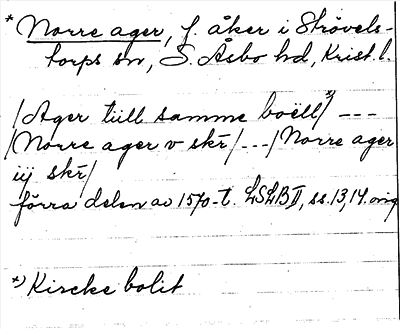 * Norre ager, f. åker i Strövels-
torps sn, S. Åsbo hd, Krist. l.
/Ager tiill samme boell/*) ---
/Norre ager v skr/---/Norre ager
iij skr/
förra delen av 1570-t. LSLB II, ss. 13, 14. orig
*) Kircke bolit